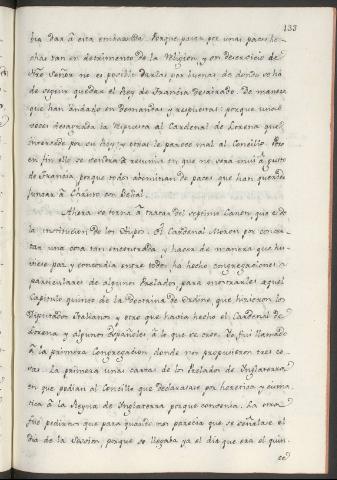 133
bia dar à esta embaxada. Porque pasar por unas paces he-
chas tan en detrimento de la Religion, y en deservicio de
Nro Señor no es posible darlas por buenas de donde se há
de seguir quedar el Rey de Francia desairado. De manera
que han andado en demandas y respuestas: porque unas
veces desagrada la respuesta al Cardenal de Lorena que
intercede por su Rey; y otras le parece mal al Concilio. Pero
en fin ello se vendrá à resumir en que no será mui à gusto
de Francia, porque todos abominan de paces que han querido
juntar à Christo con Belial.
Ahora se torna à tratar del septimo Canon, que es de
la institucion de los Obispos. El Cardenal Moron por concer-
tar una cosa tan encontrada, y hacer de manera que hu-
viese paz y concordia entre todos ha hecho congregaciones
particulares de algunos Prelados, para mostrarles aquel
Capitulo quinto de la Doctrina de Ordine, que hicieron los
Diputados Italianos y otro que havia hecho el Cardenal de
Lorena y algunos Españoles à lo que se cree. Yo fui llamado
à la primera Congregacion donde nos propusieron tres co-
sas. La primera unas cartas de los Prelados de Inglaterra
en que pedian al Concilio que declarase por heretica y cisma-
tica à la Reyna de Inglaterra porque convenia. La otra
fué pedirnos que para quando nos parecia que se señalase el
dia de la Sesion, porque se llegaba ya el dia que era el quin-
ce